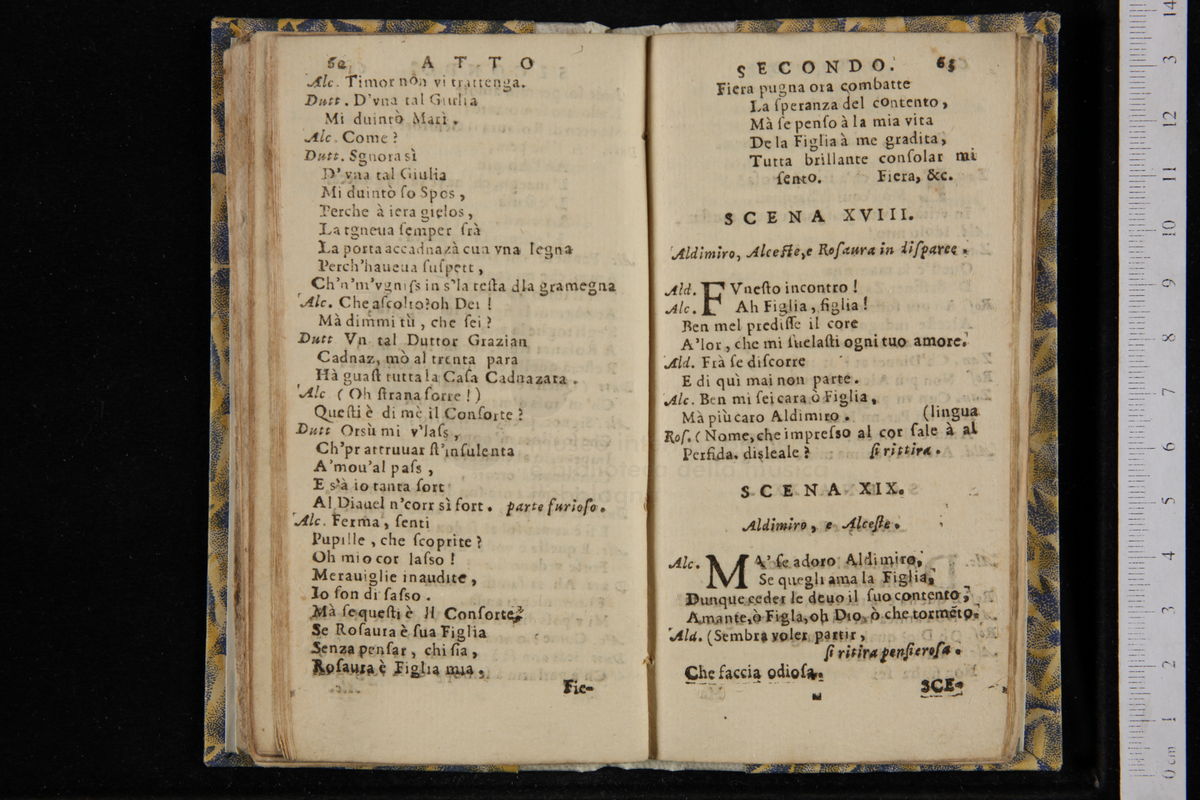 62 ATTO
Alc. Timor non vi trattenga.
Dutt. D'vna tal Giulia
Mi duintò Marì.
Alc. Come?
Dutt. Sgnora sì
D'vna tal Giulia
Mi duintò ſo Spos,
Perche à iera gielos,
La tgneua ſemper ſrà
La porta accadnazà cun vna legna
Perch'haueua ſuſpett,
Ch'n'm'vgniſs in s'la teſta dla gramegna
Alc. Che aſcolto? oh Dei!
Mà dimmi tù, che ſei?
Dutt Vn tal Duttor Grazian
Cadnaz, mò al trenta para
Hà guaſt tutta la Caſa Cadnazata.
Alc (Oh ſtrana ſorre!)
Queſti è di mè il Conſorte?
Dutt Orsù mi v'laſs,
Ch'pr attruuar ſt'inſulenta
A'mou'al paſs,
E s'à io tanta ſort
Al Diauel n'corr sì fort. parte furioſo.
Alc. Ferma, ſenti
Pupille, che ſcoprite?
Oh mio cor laſso!
Merauiglie inaudite,
Io ſon di ſaſso.
Mà ſe queſti è il Conſorte?
Se Roſaura è ſua Figlia
Senza penſar, chi ſia,
Roſaura è Figlia mia,
Fie-
SECONDO. 63
Fiera pugna ora combatte
La ſperanza del contento,
Mà ſe penſo à la mia vita
De la Figlia à me gradita,
Tutta brillante conſolar mi
ſento. Fiera, &c.
SCENA XVIII.
Aldimiro, Alceſte, e Roſaura in diſparte.
Ald. FVneſto incontro!
Alc. Ah Figlia, figlia!
Ben mel prediſſe il core
A'lor, che mi ſuelaſti ogni tuo amore.
Ald. Frà ſe diſcorre
E di quì mai non parte.
Alc. Ben mi ſei cara ò Figlia,
Mà più caro Aldimiro. (lingua
Roſ. (Nome, che impreſso al cor ſale à al
Perfida. disleale? ſi rittira.
SCENA XIX.
Aldimiro, e Alceſte.
Alc. MA' ſe adoro Aldimiro,
Se quegli ama la Figlia,
Dunque ceder le deuo il ſuo contento,
Amante, ò Figla, oh Dio, ò che tormẽto.
Ald. (Sembra voler partir,
ſi ritira penſieroſa.
Che faccia odioſa.
SCE-